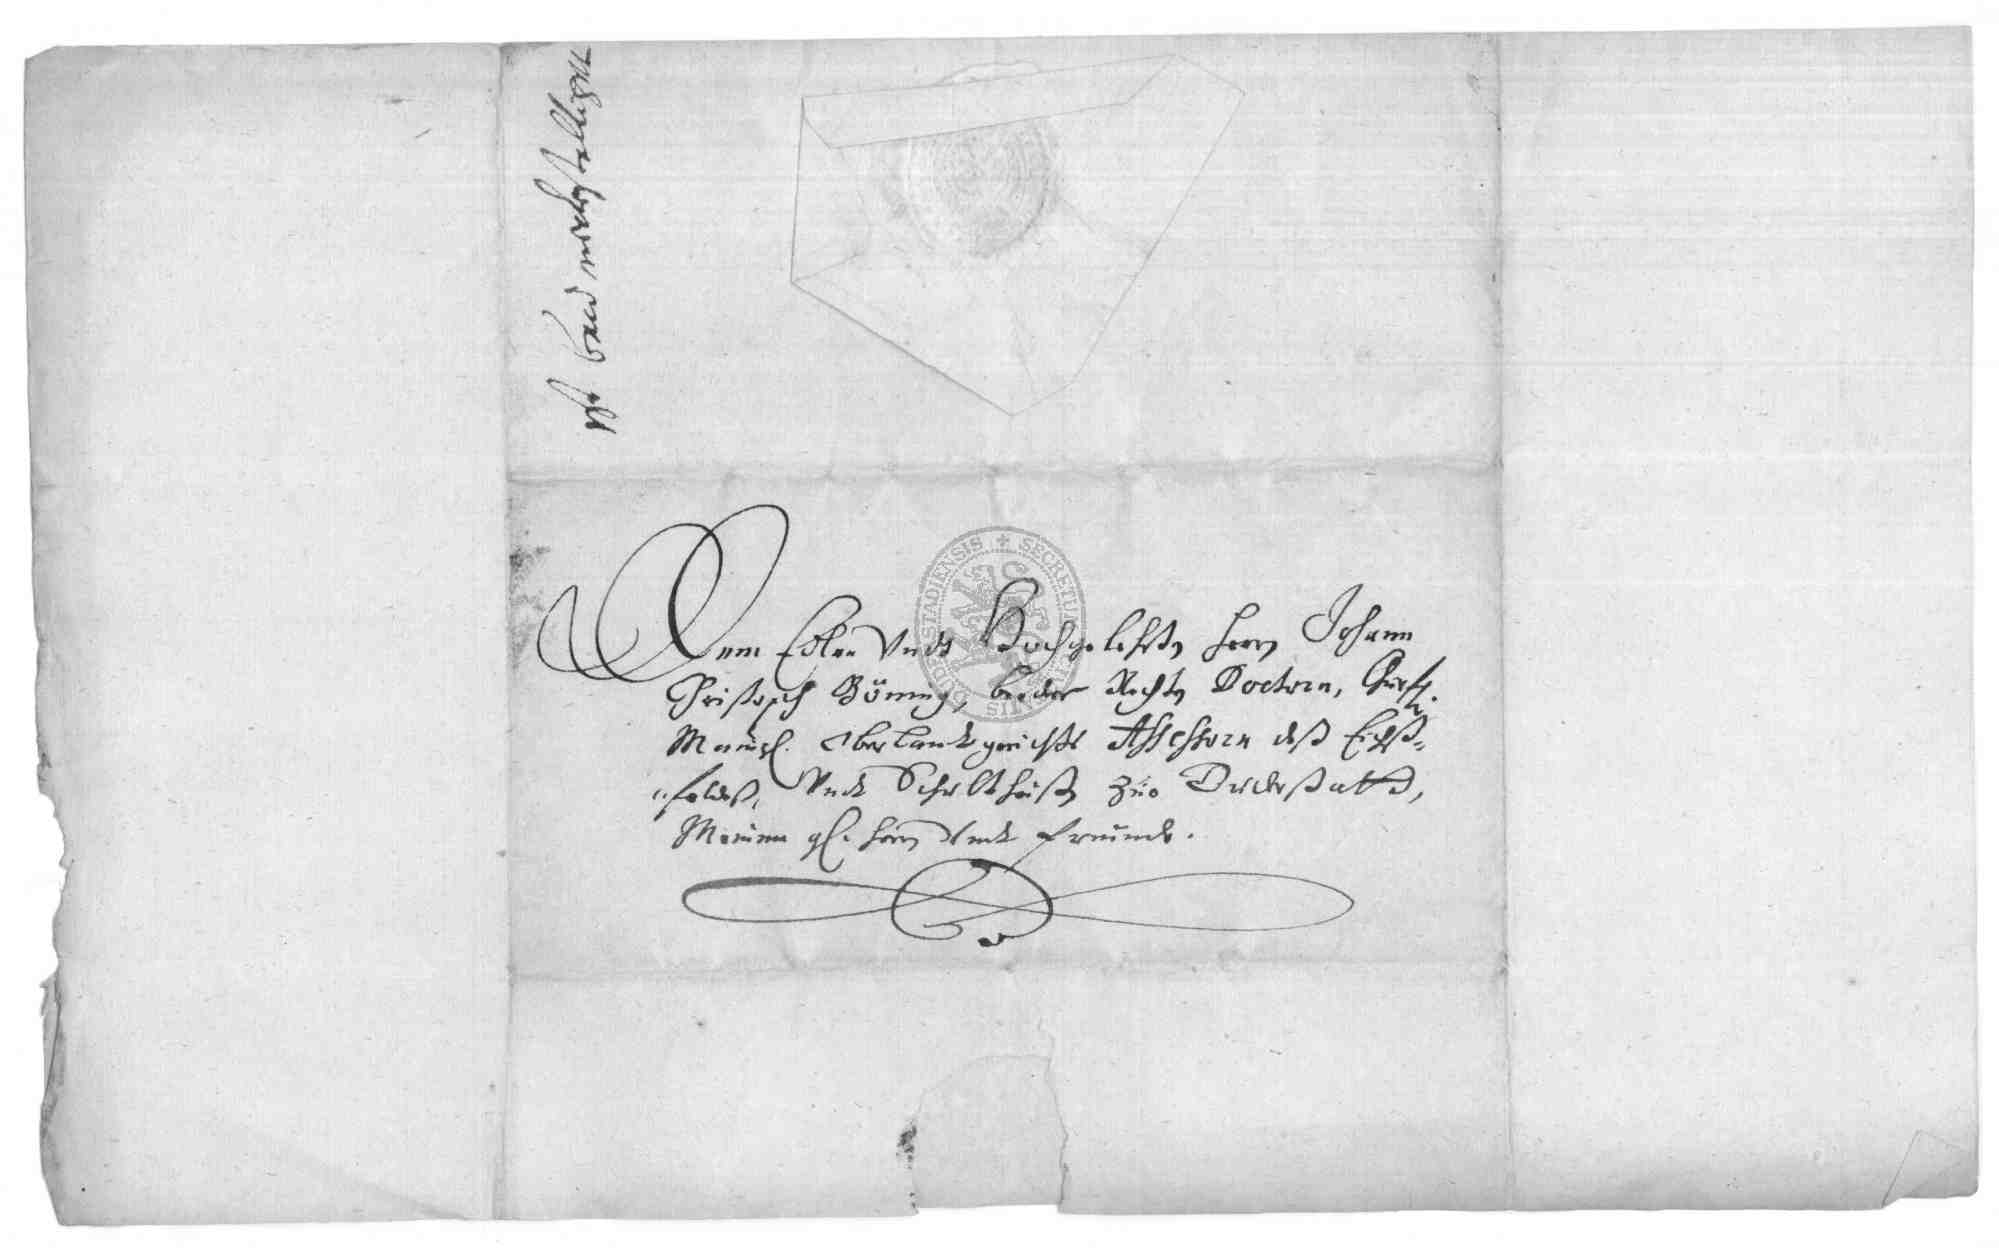 ist bald werckstelligtt
Dem Edlen Vndt Hochgelehrten Herrn Johann
Christoph Böning, beeder Rechten Doctorn, Churfl.
Maintzl. Oberlandtgerichts Assessorn deß Eichß-
feldeß, Vndt Schultheißen zuo Duderstattd,
Meinem gl. Herrn Vndt Freundt.
SECRETU DUDERSTADIENSIS